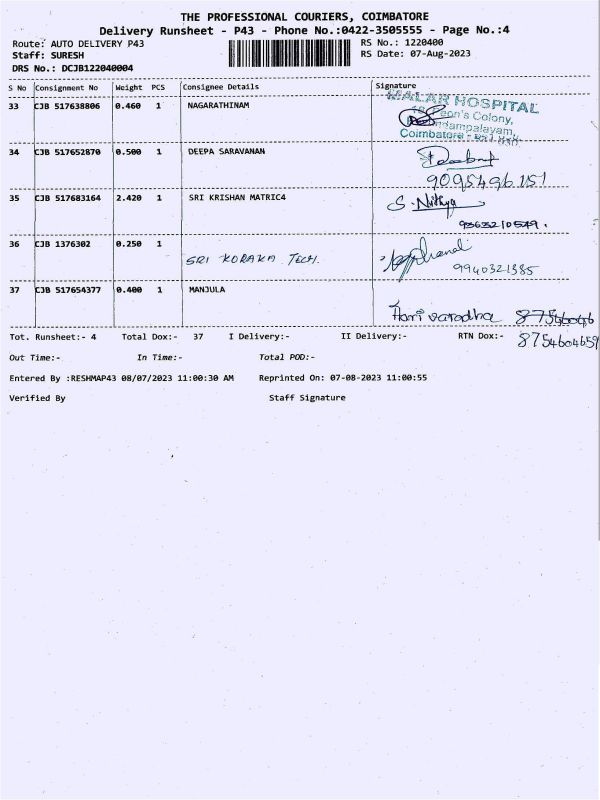 THE PROFESSIONAL COURIERS, COIMBATORE
Delivery Runsheet - P43 - Phone No.:0422-3505555 - Page No.:4
Route: AUTO DELIVERY P43 RS No.: 1220400
Staff: SURESH RS Date: 07-Aug-2023
DRS No.: DCJB122040004
S No Consignment No Weight PCS Consignee Details Signature
33 CJB 517638806 0.460 1 NAGARATHINAM
MALAR HOSPITAL
Colony,
Coimbatore
34 CJB 517652870 0.500 1 DEEPA SARAVANAN
9095496151
35 CJB 517683164 2.420 1 SRI KRISHAN MATRIC4 S. Nithya
9363210549.
36 CJB 1376302 0.250 1
SRI KORAKA TECH. 9940321385
37 CJB 517654377 0.400 1 MANJULA
Hari varadha
Tot. Runsheet:- 4 Total Dox:- 37 I Delivery:- II Delivery:- RTN Dox:- 8754604659
Out Time:- In Time:- Total POD:-
Entered By :RESHMAP43 08/07/2023 11:00:30 AM Reprinted On: 07-08-2023 11:00:55
Verified By Staff Signature